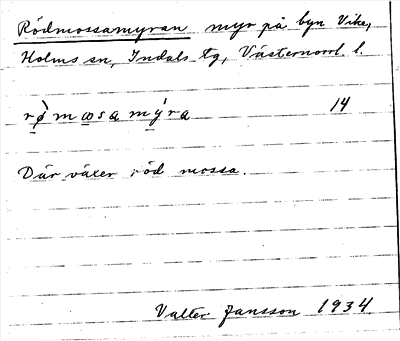 Rödmossamyran myr på byn Vike,
Holms sn, Indals tg, Västernorrl. l.
rø̀mωsamýra 14
Där växer röd mossa.
Valter Jansson 1934